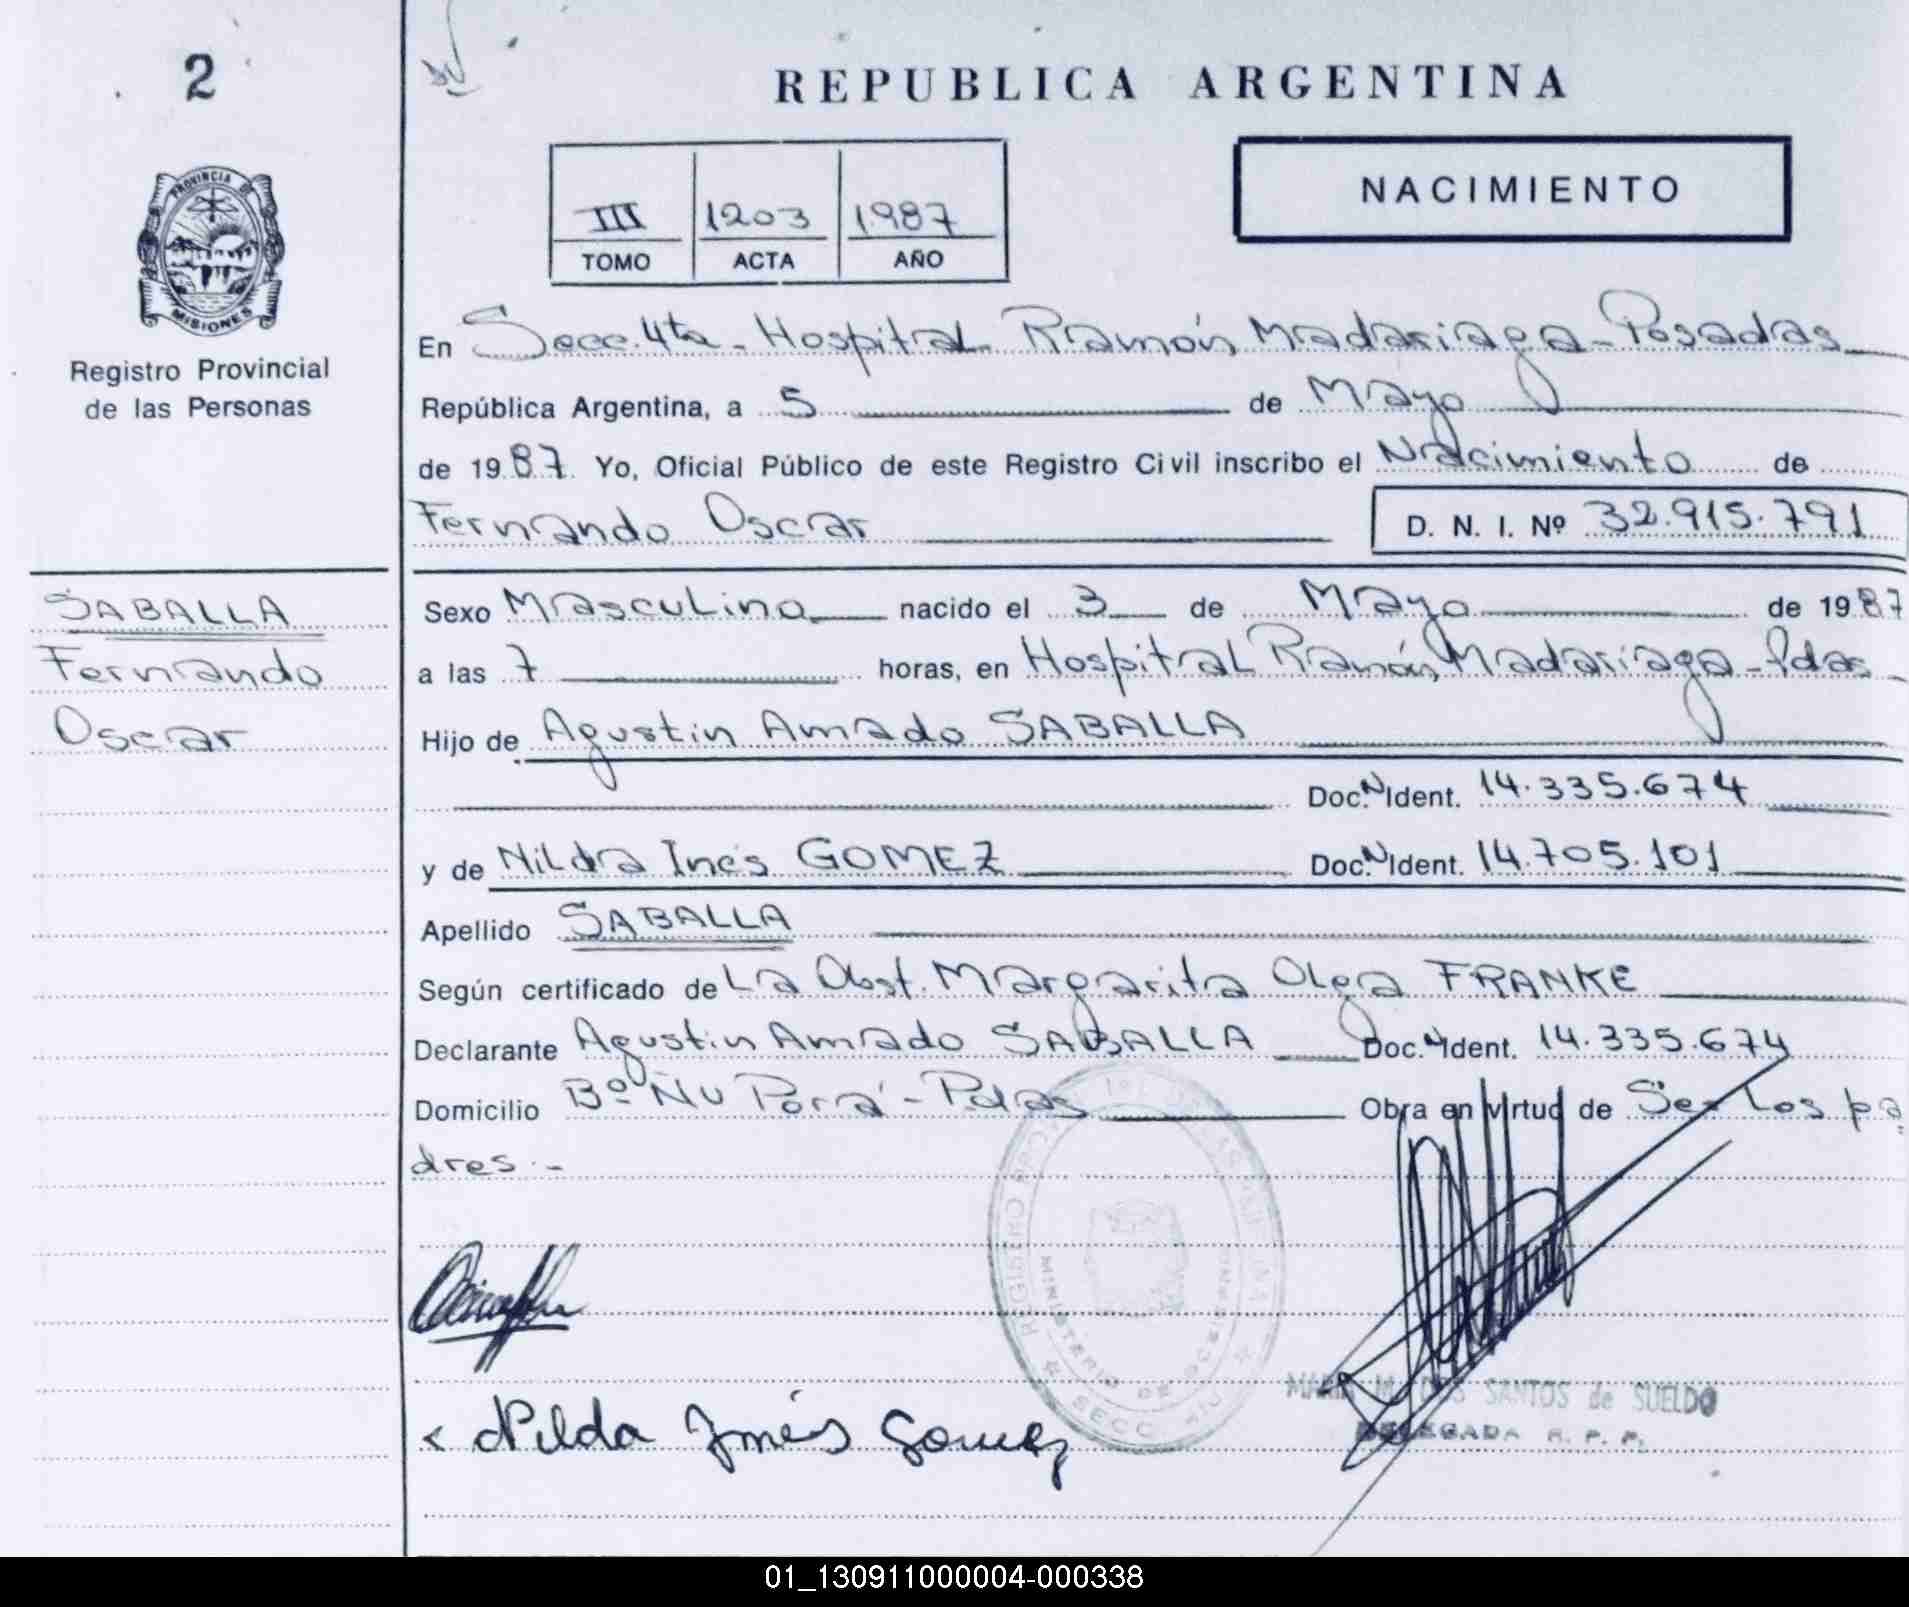 2
REPUBLICA ARGENTINA
PROVINCIA DE
MISIONES
Registro Provincial
de las Personas
III 1203 1987
TOMO ACTA AÑO
NACIMIENTO
En Secc. 4ta - Hospital Ramón Madariaga - Posadas
República Argentina, a 5 de Mayo
de 1987. Yo, Oficial Público de este Registro Civil inscribo el Nacimiento de
Fernando Oscar D. N. I. Nº 32.915.791
SABALLA
Fernando
Oscar
Sexo Masculino nacido el 3 de Mayo de 1987
a las 7 horas, en Hospital Ramón Madariaga - Pdas
Hijo de Agustin Amado SABALLA
Doc. N Ident. 14.335.674
y de Nilda Inés GOMEZ Doc. N Ident. 14.705.101
Apellido SABALLA
Según certificado de La Obst. Margarita Olga FRANKE
Declarante Agustin Amado SABALLA Doc. N Ident. 14.335.674
Domicilio Bº Ñu Porá - Pdas Obra en virtud de Ser Los pa
dres.-
REGISTRO
MINISTERIO DE
SECC.
MARIA M. DOS SANTOS de SUELDO
DELEGADA R. P. P.
Nilda Inés Gomez
01_130911000004-000338